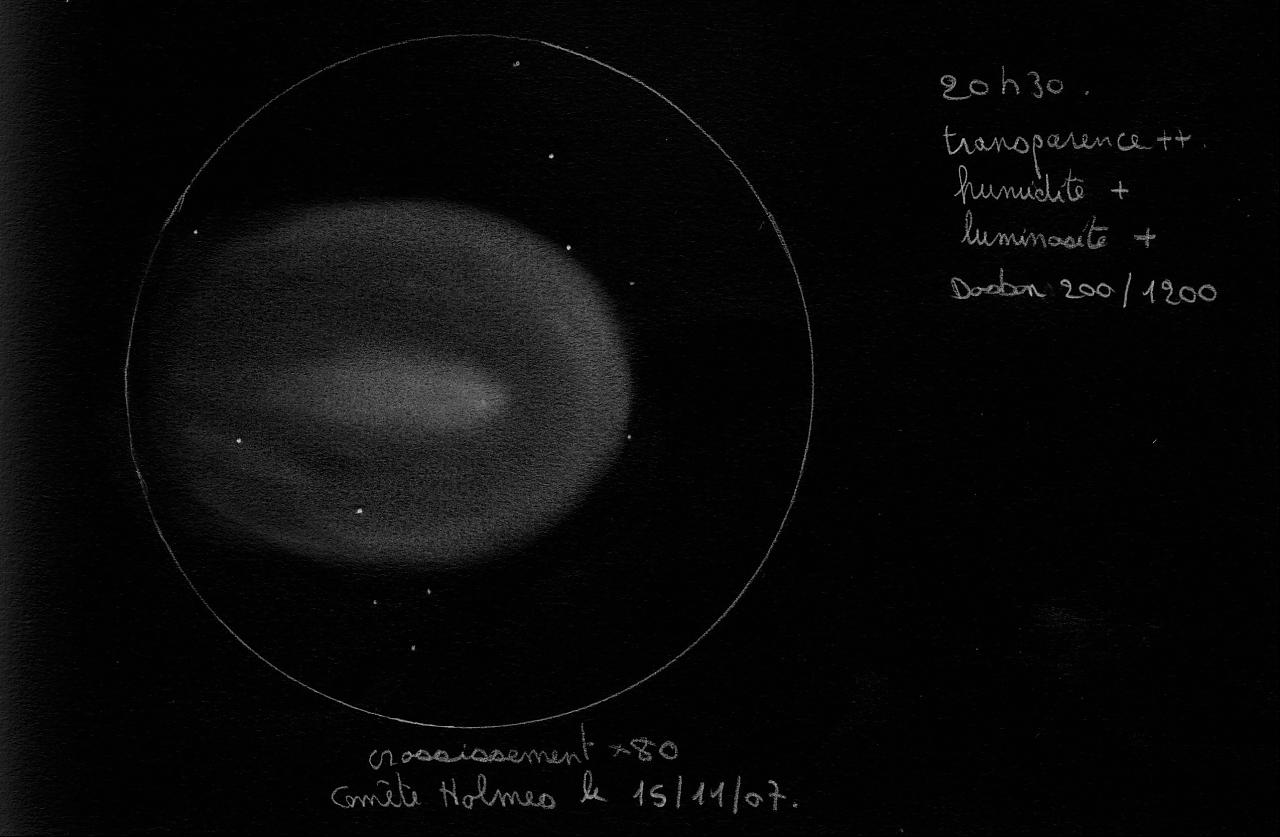 20h30.
transparence ++.
humidité +
luminosité +
Dobson 200/1200
grossissement ×80
Comète Holmes le 15/11/07.